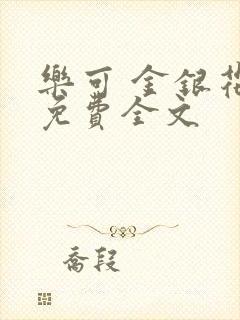 樂可 金銀花
免費全文
喬段